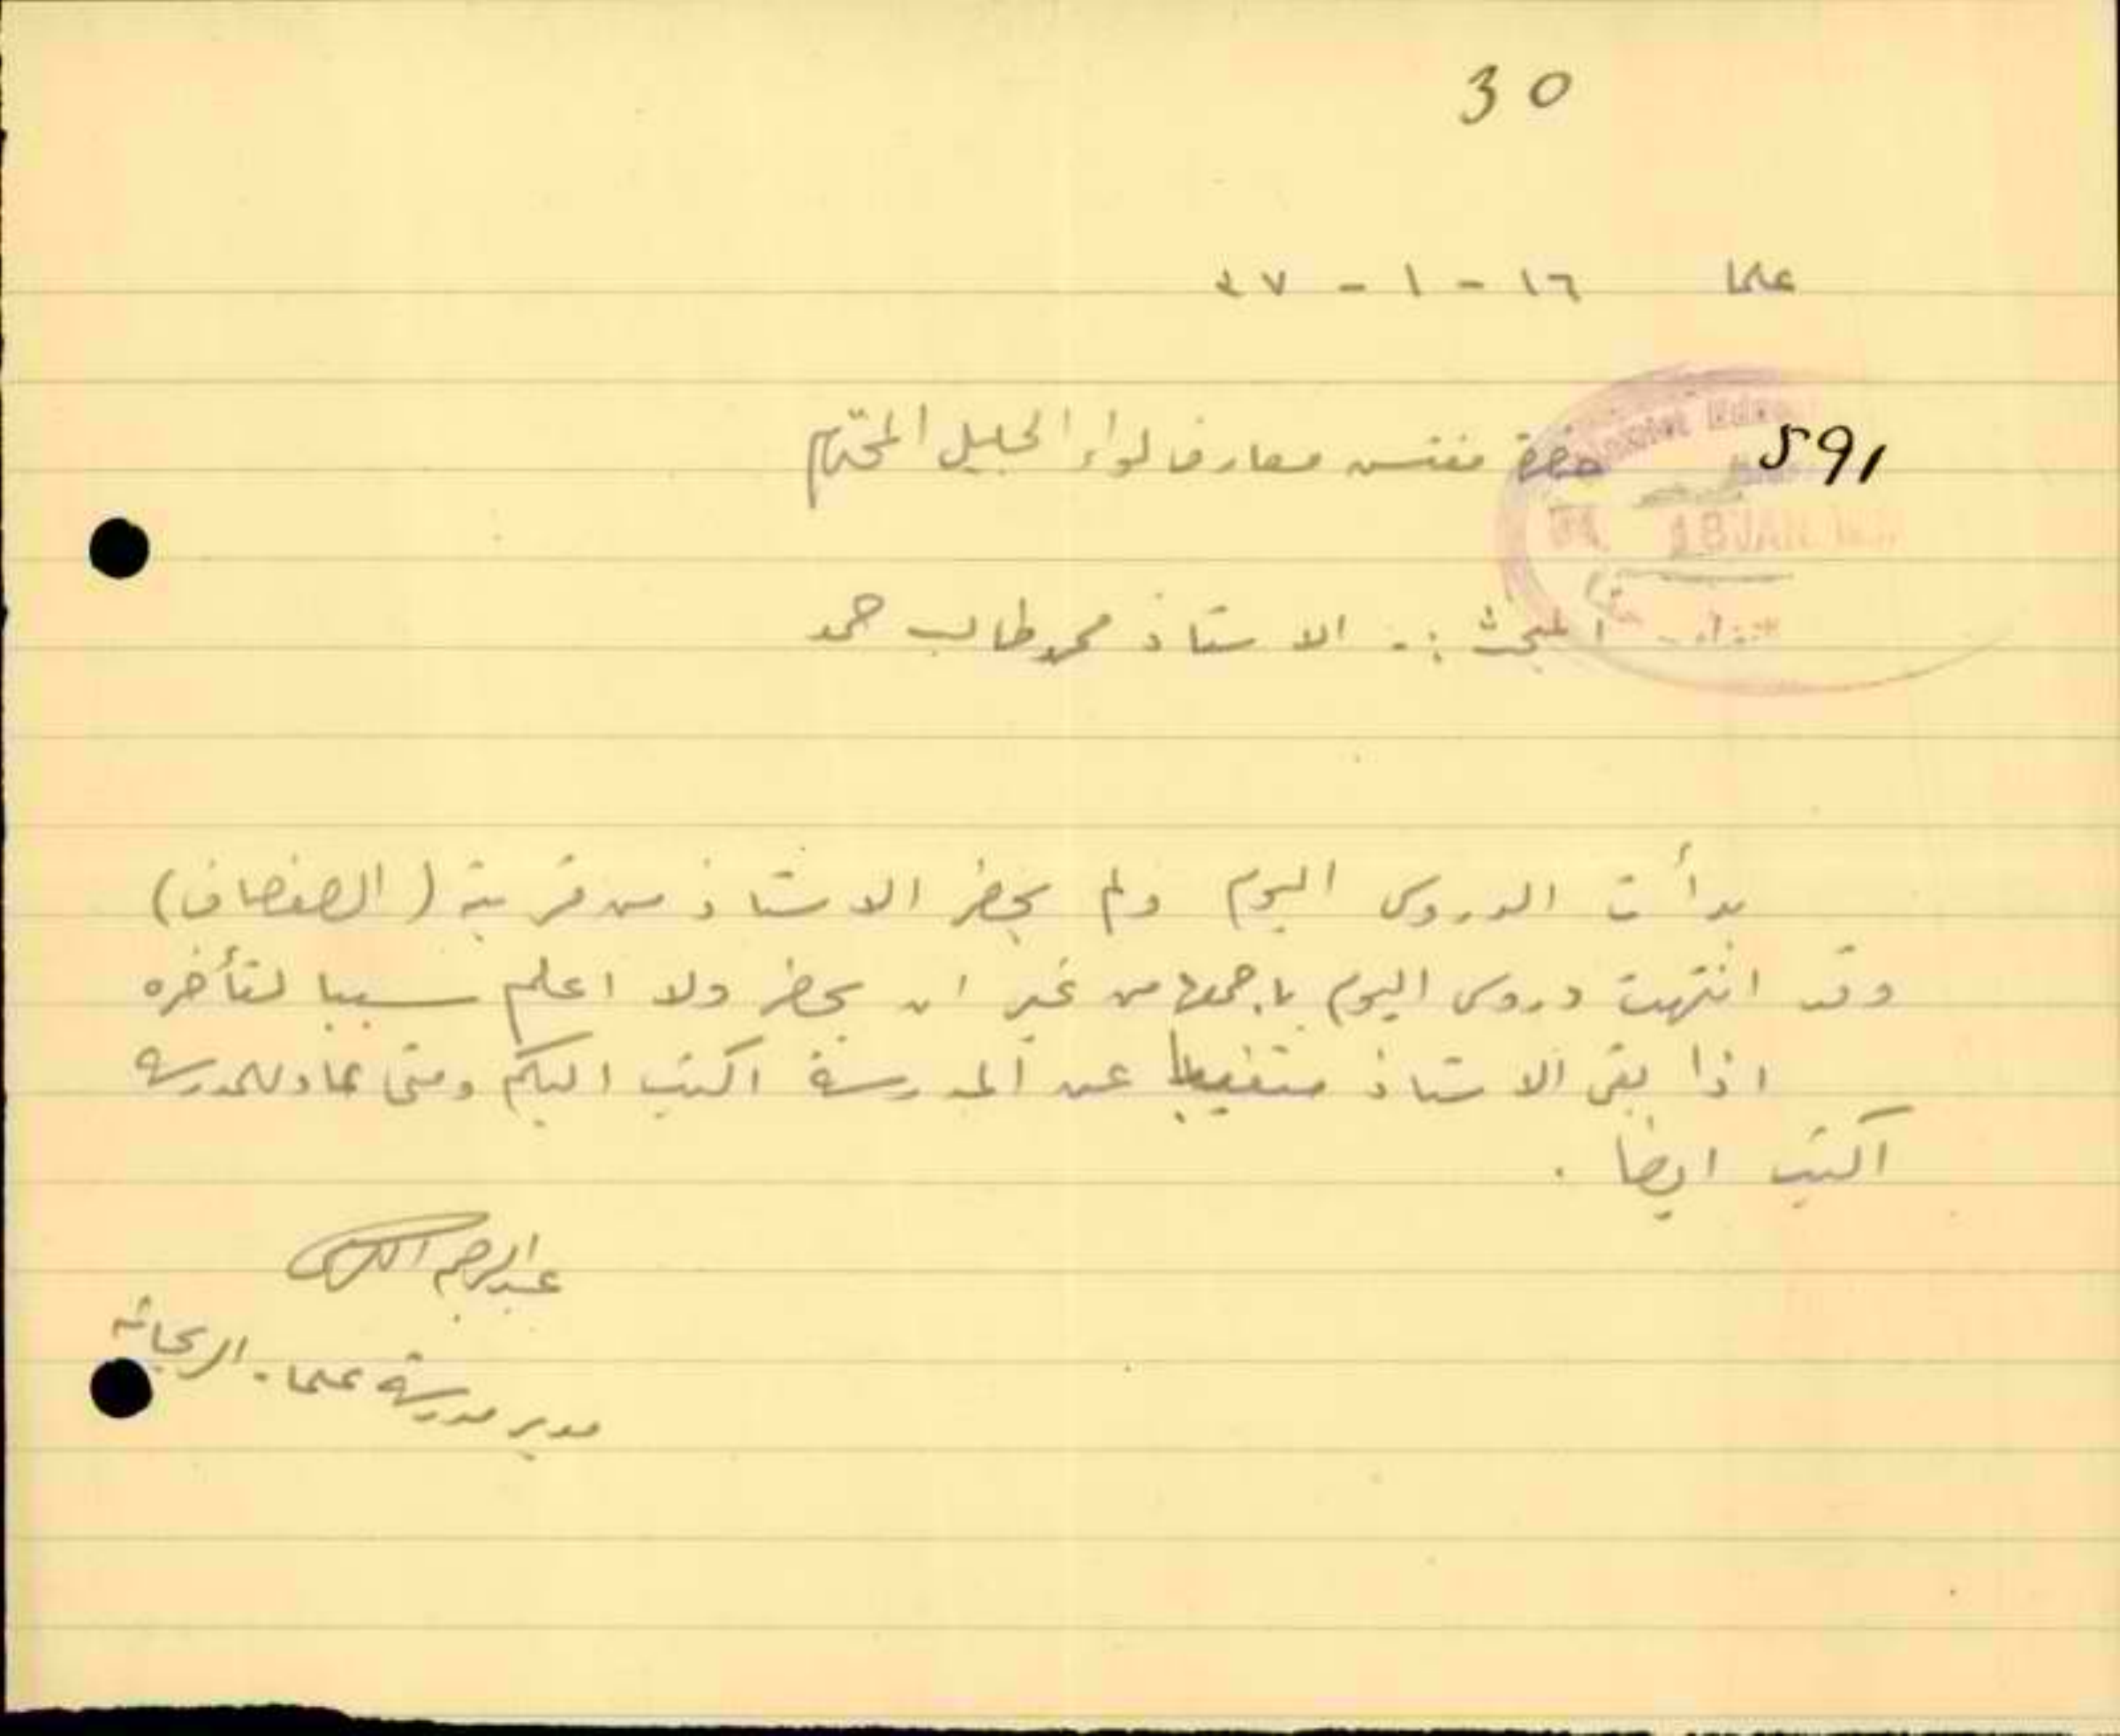 30
علما ١٦ - ١ - ٣٧
591
حضرة مفتش معارف لواء الجليل المحترم
18 JAN
المبحث :. الاستاذ محمد طالب حمد
بدأت الدروس اليوم ولم يحضر الاستاذ من قرية (الصفصاف)
وقد انتهت دروس اليوم باجمعها من غير ان يحضر ولا اعلم سببا لتأخره
اذا بقى الاستاذ متغيبا عن المدرسة اكتب اليكم ومتى عاد للمدرسة
اكتب ايضا .
عبدالرحيم
مدير مدرسة علما - الريحانه